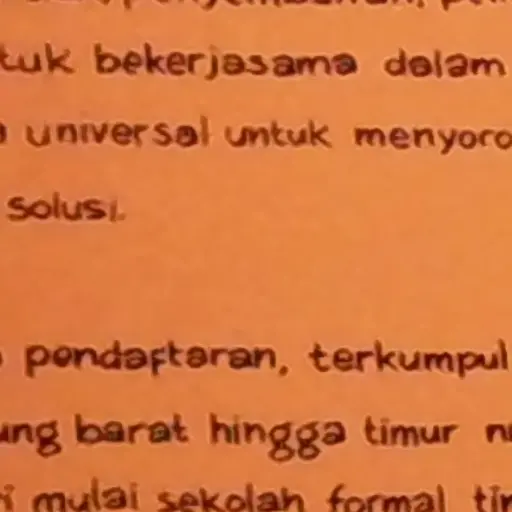 tuk bekerjasama dalam
universal untuk menyoro
solusi.
pendaftaran, terkumpul
ung barat hingga timur
mulai sekolah formal